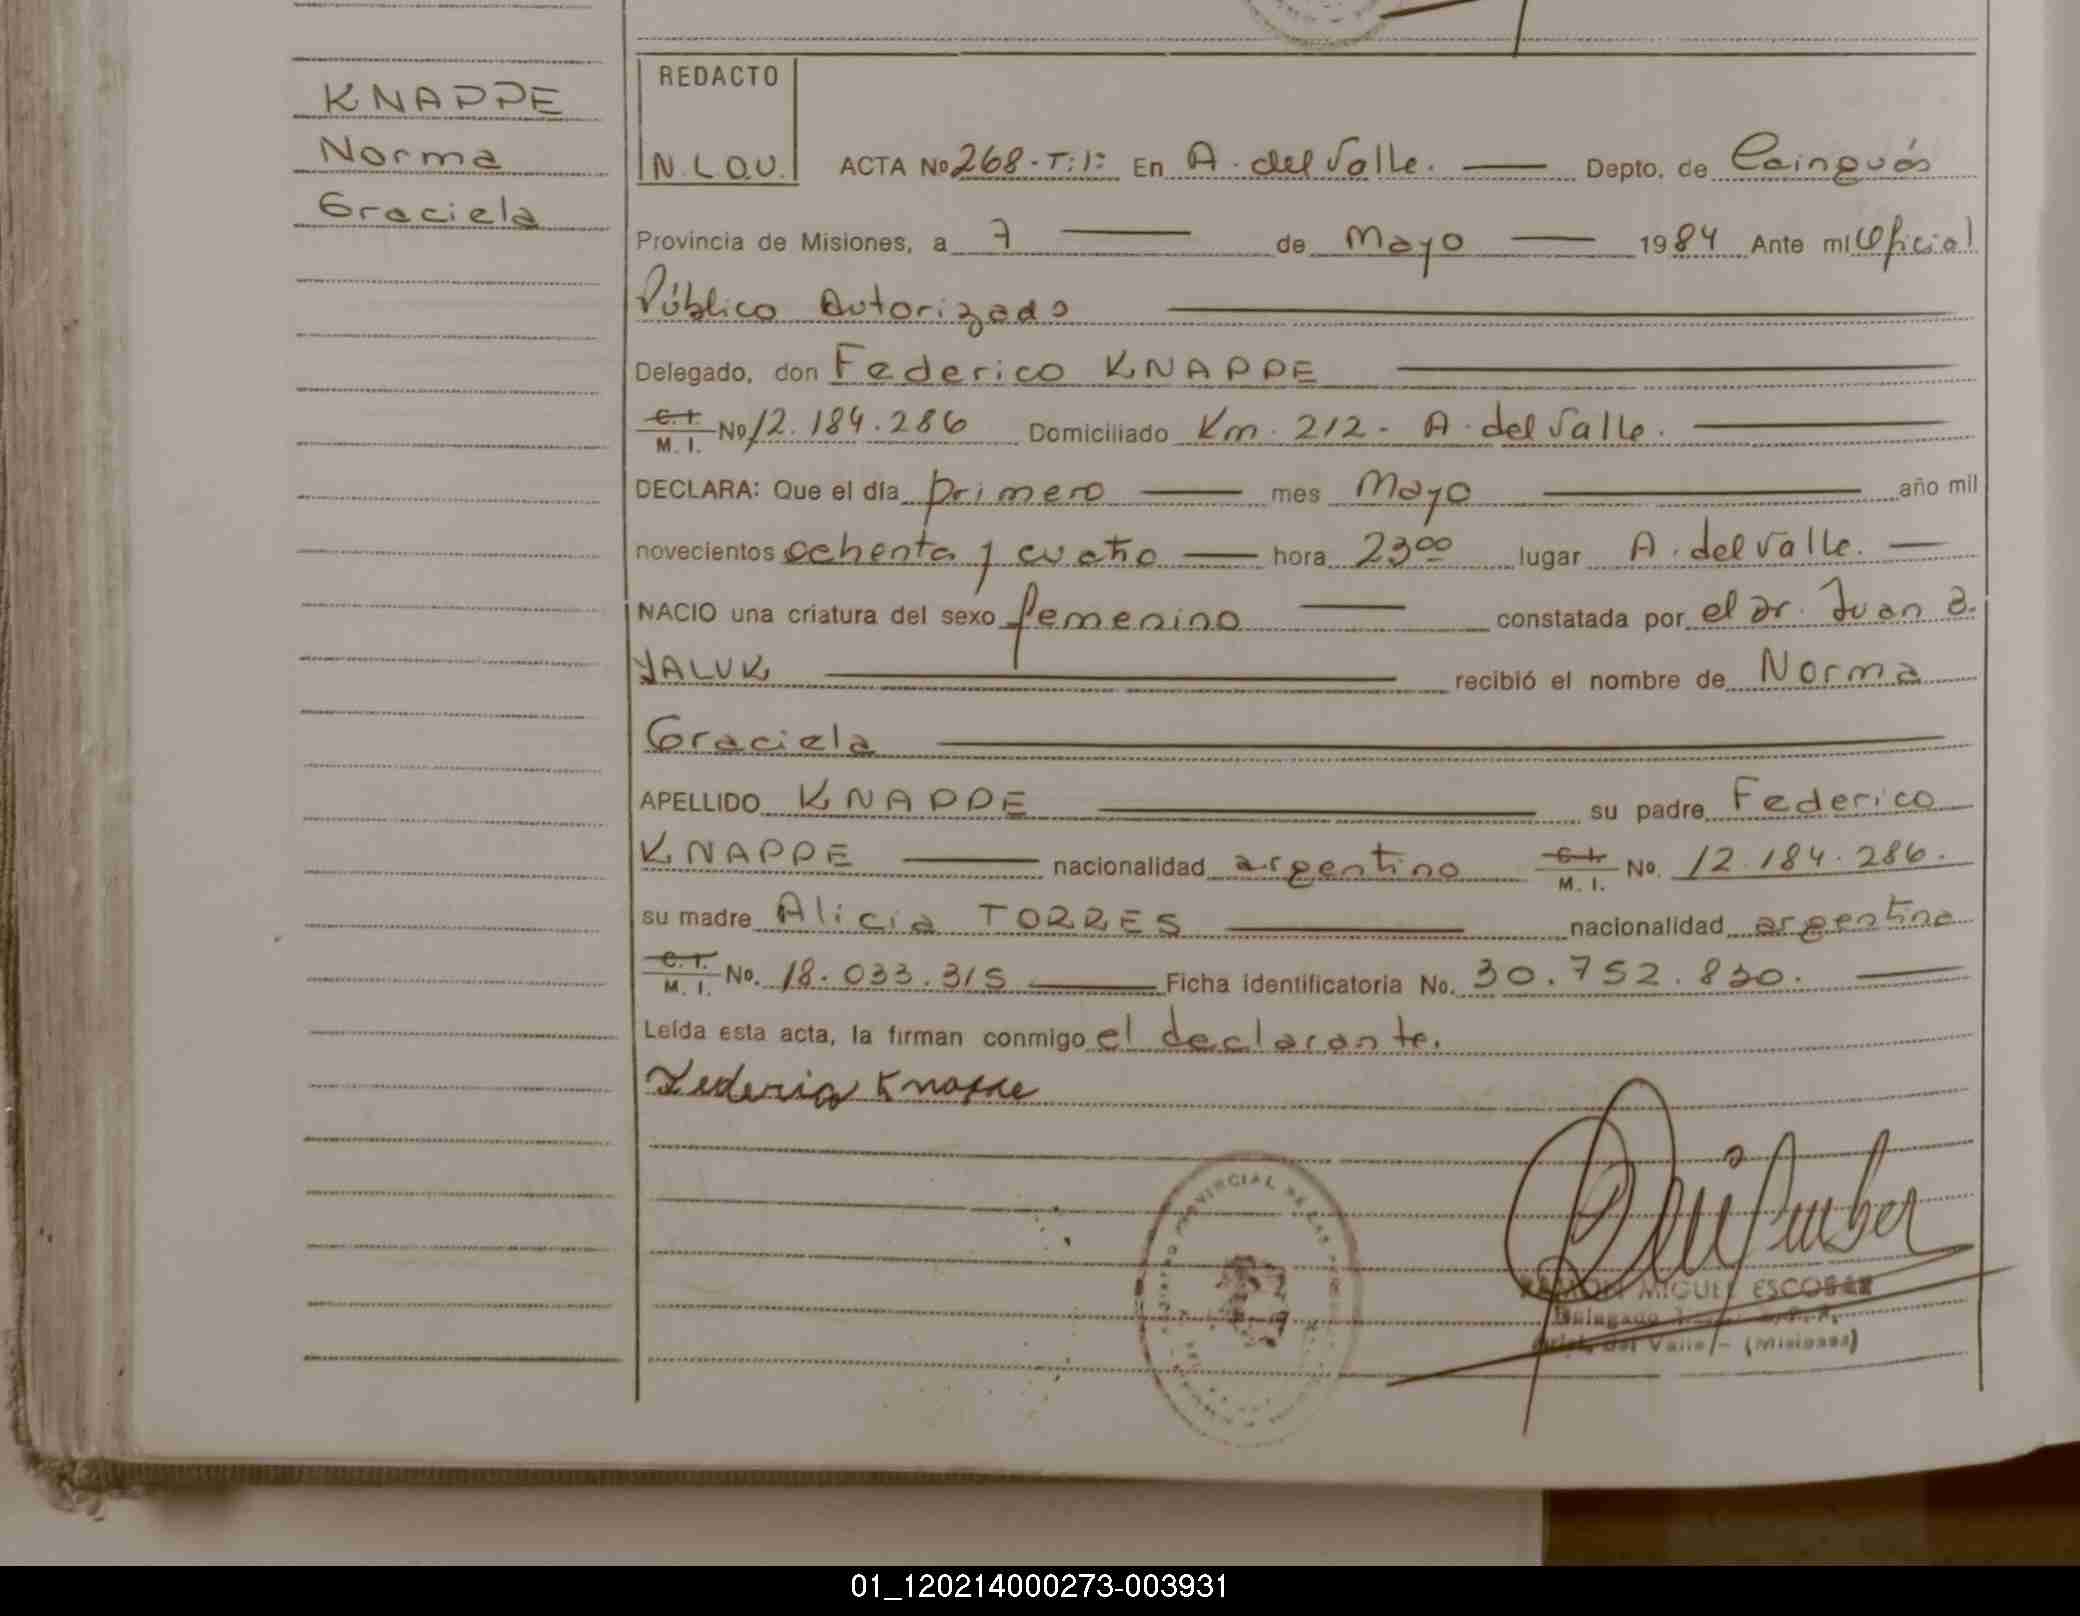 KNAPPE
Norma
Graciela
REDACTO
N.L.O.U.
ACTA No 268-T:1: En A. del Valle. Depto. de Cainguás
Provincia de Misiones, a 7 de Mayo 1984 Ante mi Oficial
Público Autorizado
Delegado, don Federico KNAPPE
C. I. M. I. No 12.184.286 Domiciliado Km. 212- A. del Valle.
DECLARA: Que el día primero mes Mayo año mil
novecientos ochenta y cuatro hora 23 00 lugar A. del Valle.
NACIO una criatura del sexo femenino constatada por el Dr. Juan
YALUK recibió el nombre de Norma
Graciela
APELLIDO KNAPPE su padre Federico
KNAPPE nacionalidad argentino C. I. M. I. No. 12.184.286.
su madre Alicia TORRES nacionalidad argentina
C. I. M. I. No. 18.033.315 Ficha identificatoria No. 30.752.820.
Leída esta acta, la firman conmigo el declarante.
Federico Knappe
PROVINCIAL DE LAS
RAMON MIGUEL ESCOBAR
Delegado
del Valle - (Misiones)
01_120214000273-003931